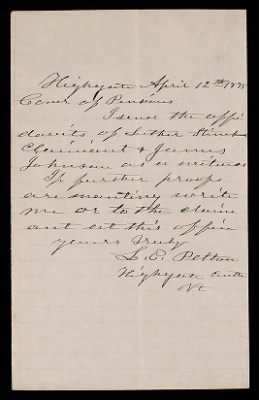 Highgate April 12th 1875
Comr of Pensions
I send the affi
davits of Luther
Claimient & James
Johnson as a witness
If further proofs
are wanting write
me or to the claim
ant at this office
yours Truly
L. E. Pelton
Highgate Centre
Vt